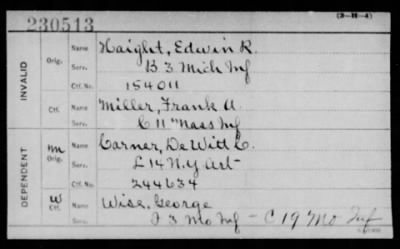 230513
(3-H-4)
INVALID
Orig.
Name Haight, Edwin R.
Serv. B 3 Mich Inf
Ctf. No. 154011
Ctf.
Name Miller, Frank A.
Serv. C 11 Mass Inf
DEPENDENT
m
Orig.
Name Carner, De Witt C.
Serv. L 14 N.Y Art
Ctf. No. 244634
W
Ctf.
Name Wise, George
Serv. I 3 Mo Inf - C 19 Mo Inf